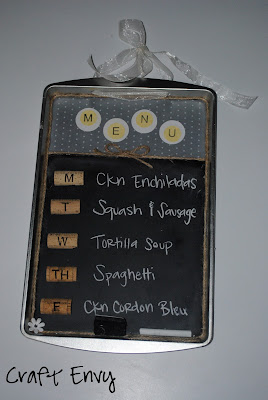 MENU
M Ckn Enchiladas
T Squash & Sausage
W Tortilla Soup
TH Spaghetti
F Ckn Cordon Bleu
Craft Envy